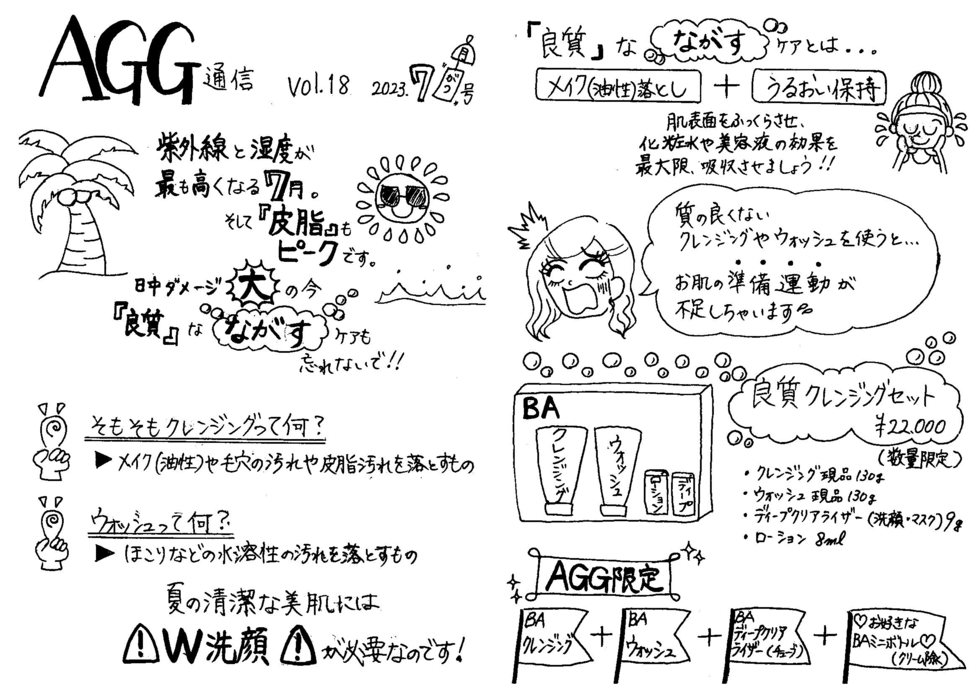 AGG通信 Vol.18 2023.7月号
紫外線と湿度が
最も高くなる7月。
そして『皮脂』も
ピークです。
日中ダメージ大の今
『良質』なながすケアも
忘れないで!!
そもそもクレンジングって何?
▶メイク(油性)や毛穴の汚れや皮脂汚れを落とすもの
ウォッシュって何?
▶ほこりなどの水溶性の汚れを落とすもの
夏の清潔な美肌には
W洗顔が必要なのです!
「良質」なながすケアとは...
メイク(油性)落とし + うるおい保持
肌表面をふっくらさせ、
化粧水や美容液の効果を
最大限、吸収させましょう!!
質の良くない
クレンジングやウォッシュを使うと...
お肌の準備運動が
不足しちゃいます
BA
クレンジング
ウォッシュ
ローション
ディープ
良質クレンジングセット
¥22,000
(数量限定)
・クレンジング現品130g
・ウォッシュ現品130g
・ディープクリアライザー(洗顔・マスク)9g
・ローション 8ml
AGG限定
BA
クレンジング
+
BA
ウォッシュ
+
BA
ディープクリア
ライザー(チューブ)
+
♡お好きな
BAミニボトル♡
(クリーム除く)